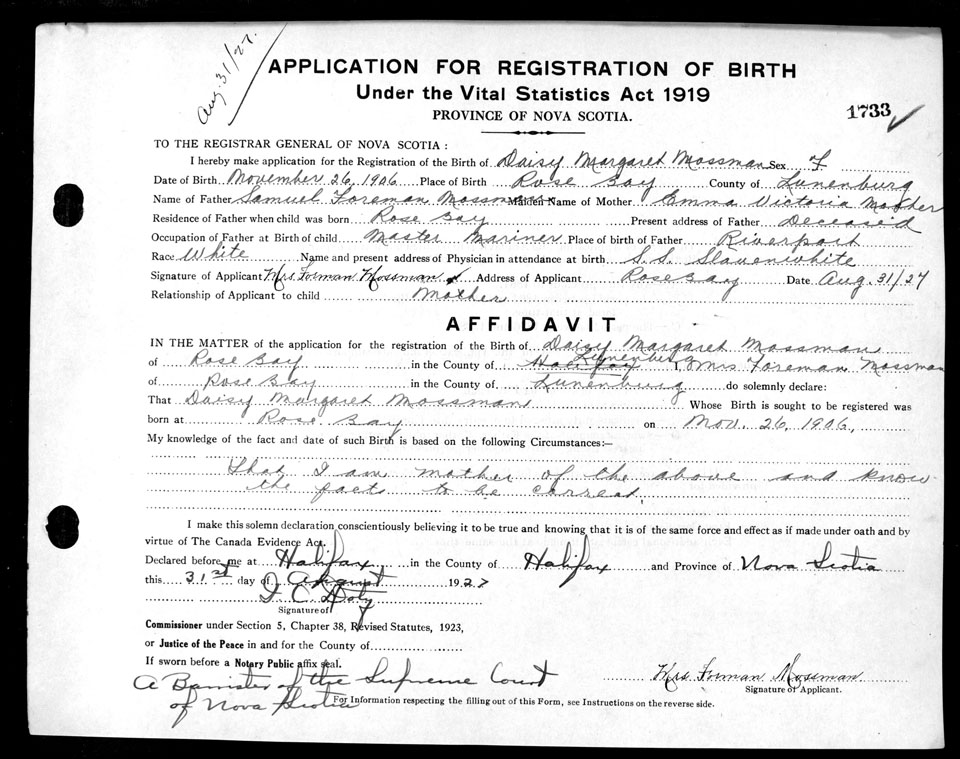 Aug. 31/27.
APPLICATION FOR REGISTRATION OF BIRTH
Under the Vital Statistics Act 1919
PROVINCE OF NOVA SCOTIA.
1733
TO THE REGISTRAR GENERAL OF NOVA SCOTIA :
I hereby make application for the Registration of the Birth of Daisy Margaret Mossman Sex F
Date of Birth November 26, 1906 Place of Birth Rose Bay County of Lunenburg
Name of Father Samuel Foreman Mossman Maiden Name of Mother Emma Victoria Mosher
Residence of Father when child was born Rose Bay Present address of Father Deceased
Occupation of Father at Birth of child Master Mariner Place of birth of Father Riverport
Race White Name and present address of Physician in attendance at birth S. S. Slauenwhite
Signature of Applicant Mrs Forman Mossman Address of Applicant Rose Bay Date Aug. 31/27
Relationship of Applicant to child Mother
AFFIDAVIT
IN THE MATTER of the application for the registration of the Birth of Daisy Margaret Mossman
of Rose Bay in the County of Halifax Lunenburg I, Mrs Foreman Mossman
of Rose Bay in the County of Lunenburg do solemnly declare:
That Daisy Margaret Mossman Whose Birth is sought to be registered was
born at Rose Bay on Nov. 26, 1906,
My knowledge of the fact and date of such Birth is based on the following Circumstances:—
That I am mother of the above and know
the facts to be correct.
I make this solemn declaration conscientiously believing it to be true and knowing that it is of the same force and effect as if made under oath and by
virtue of The Canada Evidence Act.
Declared before me at Halifax in the County of Halifax and Province of Nova Scotia
this 31st day of August 1927
Signature of
Commissioner under Section 5, Chapter 38, Revised Statutes, 1923,
or Justice of the Peace in and for the County of
If sworn before a Notary Public affix seal.
A Barrister of the Supreme Court
of Nova Scotia
Mrs Forman Mossman
Signature of Applicant.
For Information respecting the filling out of this Form, see Instructions on the reverse side.